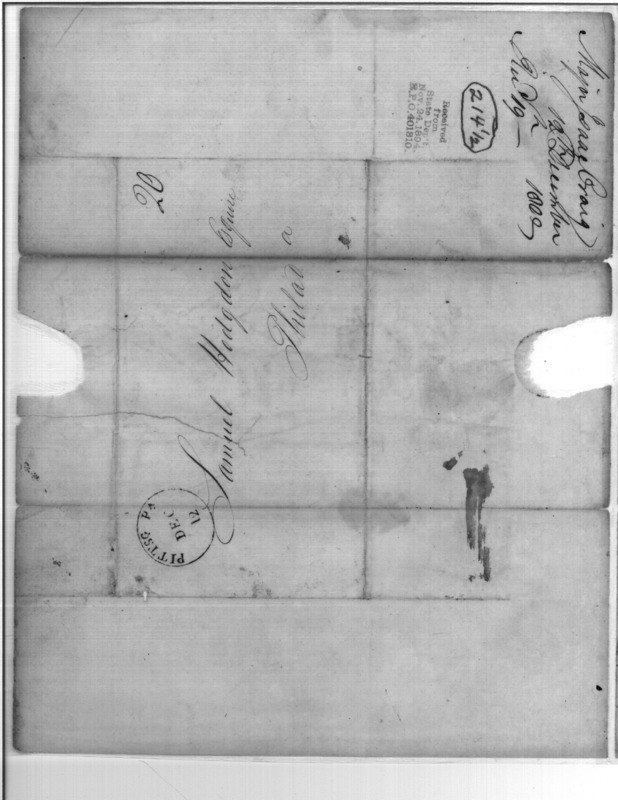 Major Isaac Craig
12 December
1802
Received
from
State Dep't.
Nov. 24, 1894.
R.P.O. 401810.
214½
Samuel Hodgdon Esquire
Philad a
PITTSG PA
DEC
12